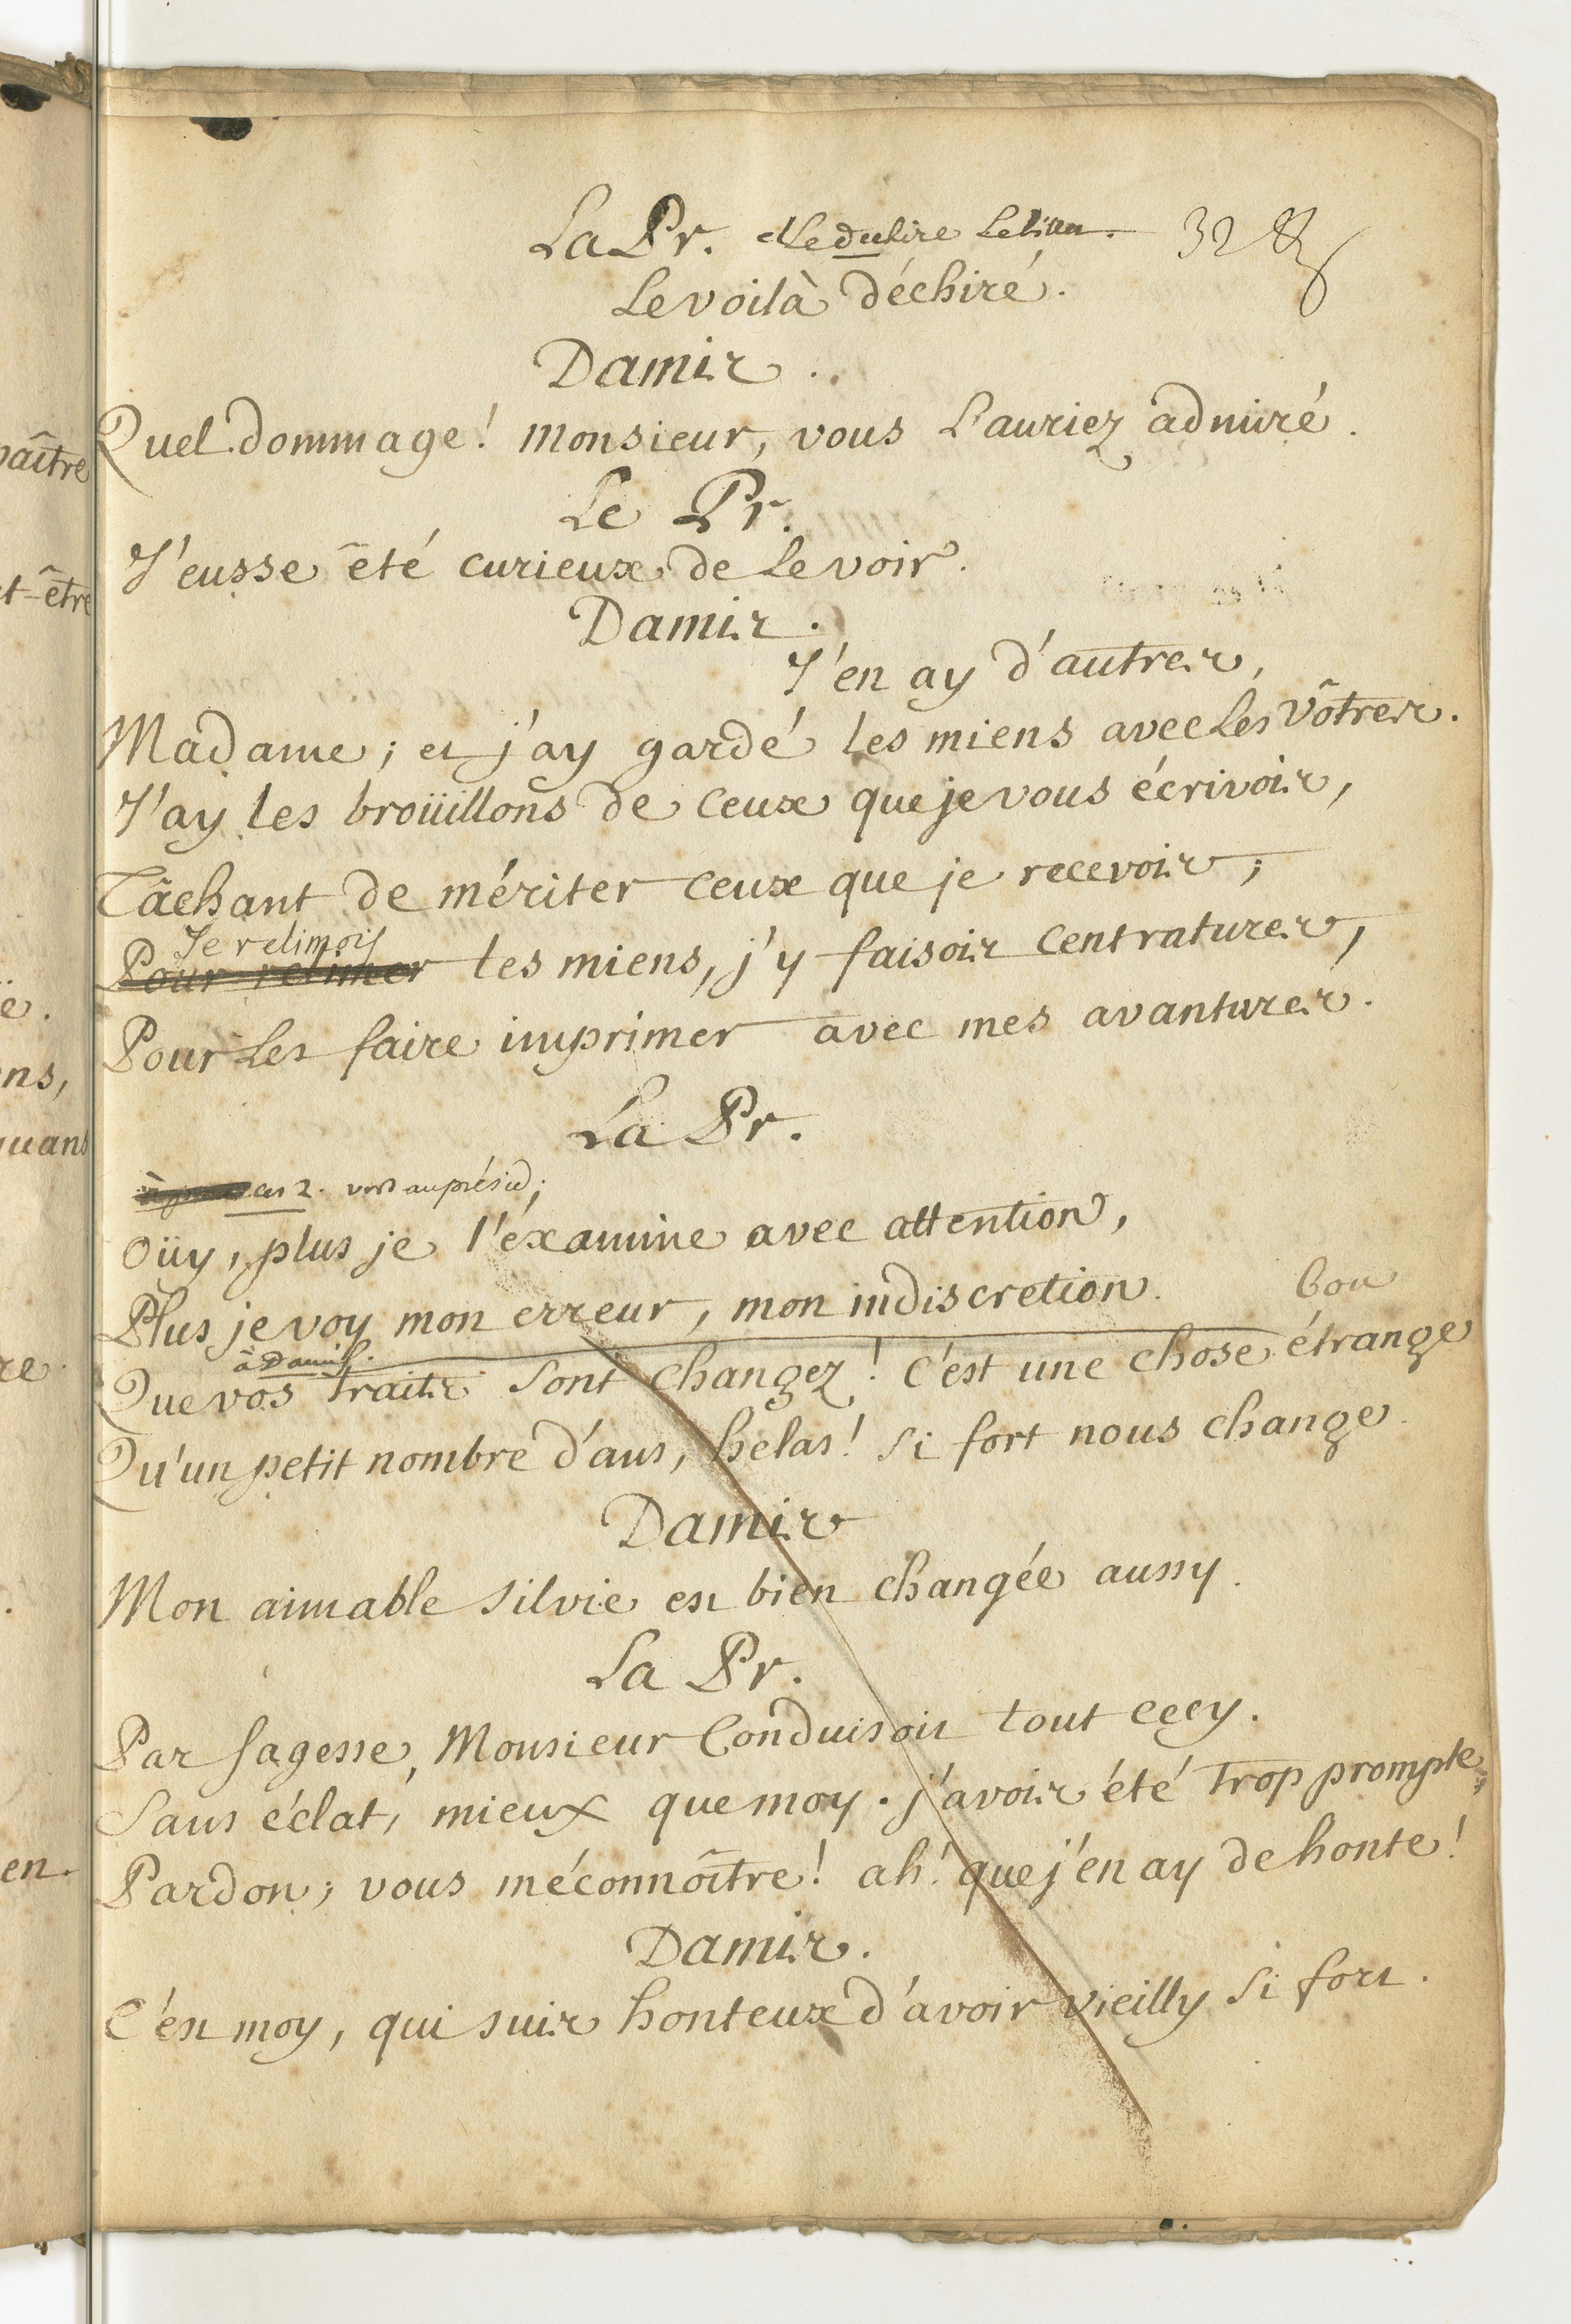 La Pr. elle dechire le billet. 32
Le voilà déchiré.
Damis.
Quel dommage! Monsieur, vous l'auriez admiré.
Le Pr.
J'eusse êté curieux de le voir.
Damis.
J'en ay d'autres,
Madame; et j'ay gardé les miens avec les vôtres.
J'ay les broüillons de ceux que je vous écrivois,
Tâchant de mériter ceux que je recevois;
Je relimois
Pour relimer les miens, j'y faisois cent ratures,
Pour les faire imprimer avec mes avantures.
La Pr.
ces 2. vers au présid;
Oüy, plus je l'éxamine avec attention,
Plus je voy mon erreur, mon indiscretion.
bon
à Damis.
Que vos traits sont changez! c'est une chose étrange
Qu'un petit nombre d'ans, hélas! si fort nous change
Damis
Mon aimable Silvie est bien changée aussy.
La Pr.
Par sagesse, Monsieur Conduisoit tout cecy.
Sans éclat, mieux que moy. j'avois été trop prompte
Pardon; vous méconnoître! ah! que j'en ay de honte!
Damis.
C'est moy, qui suis honteux d'avoir vieilly si fort.
paître
t-être
ë.
ens,
quant
re.
en.